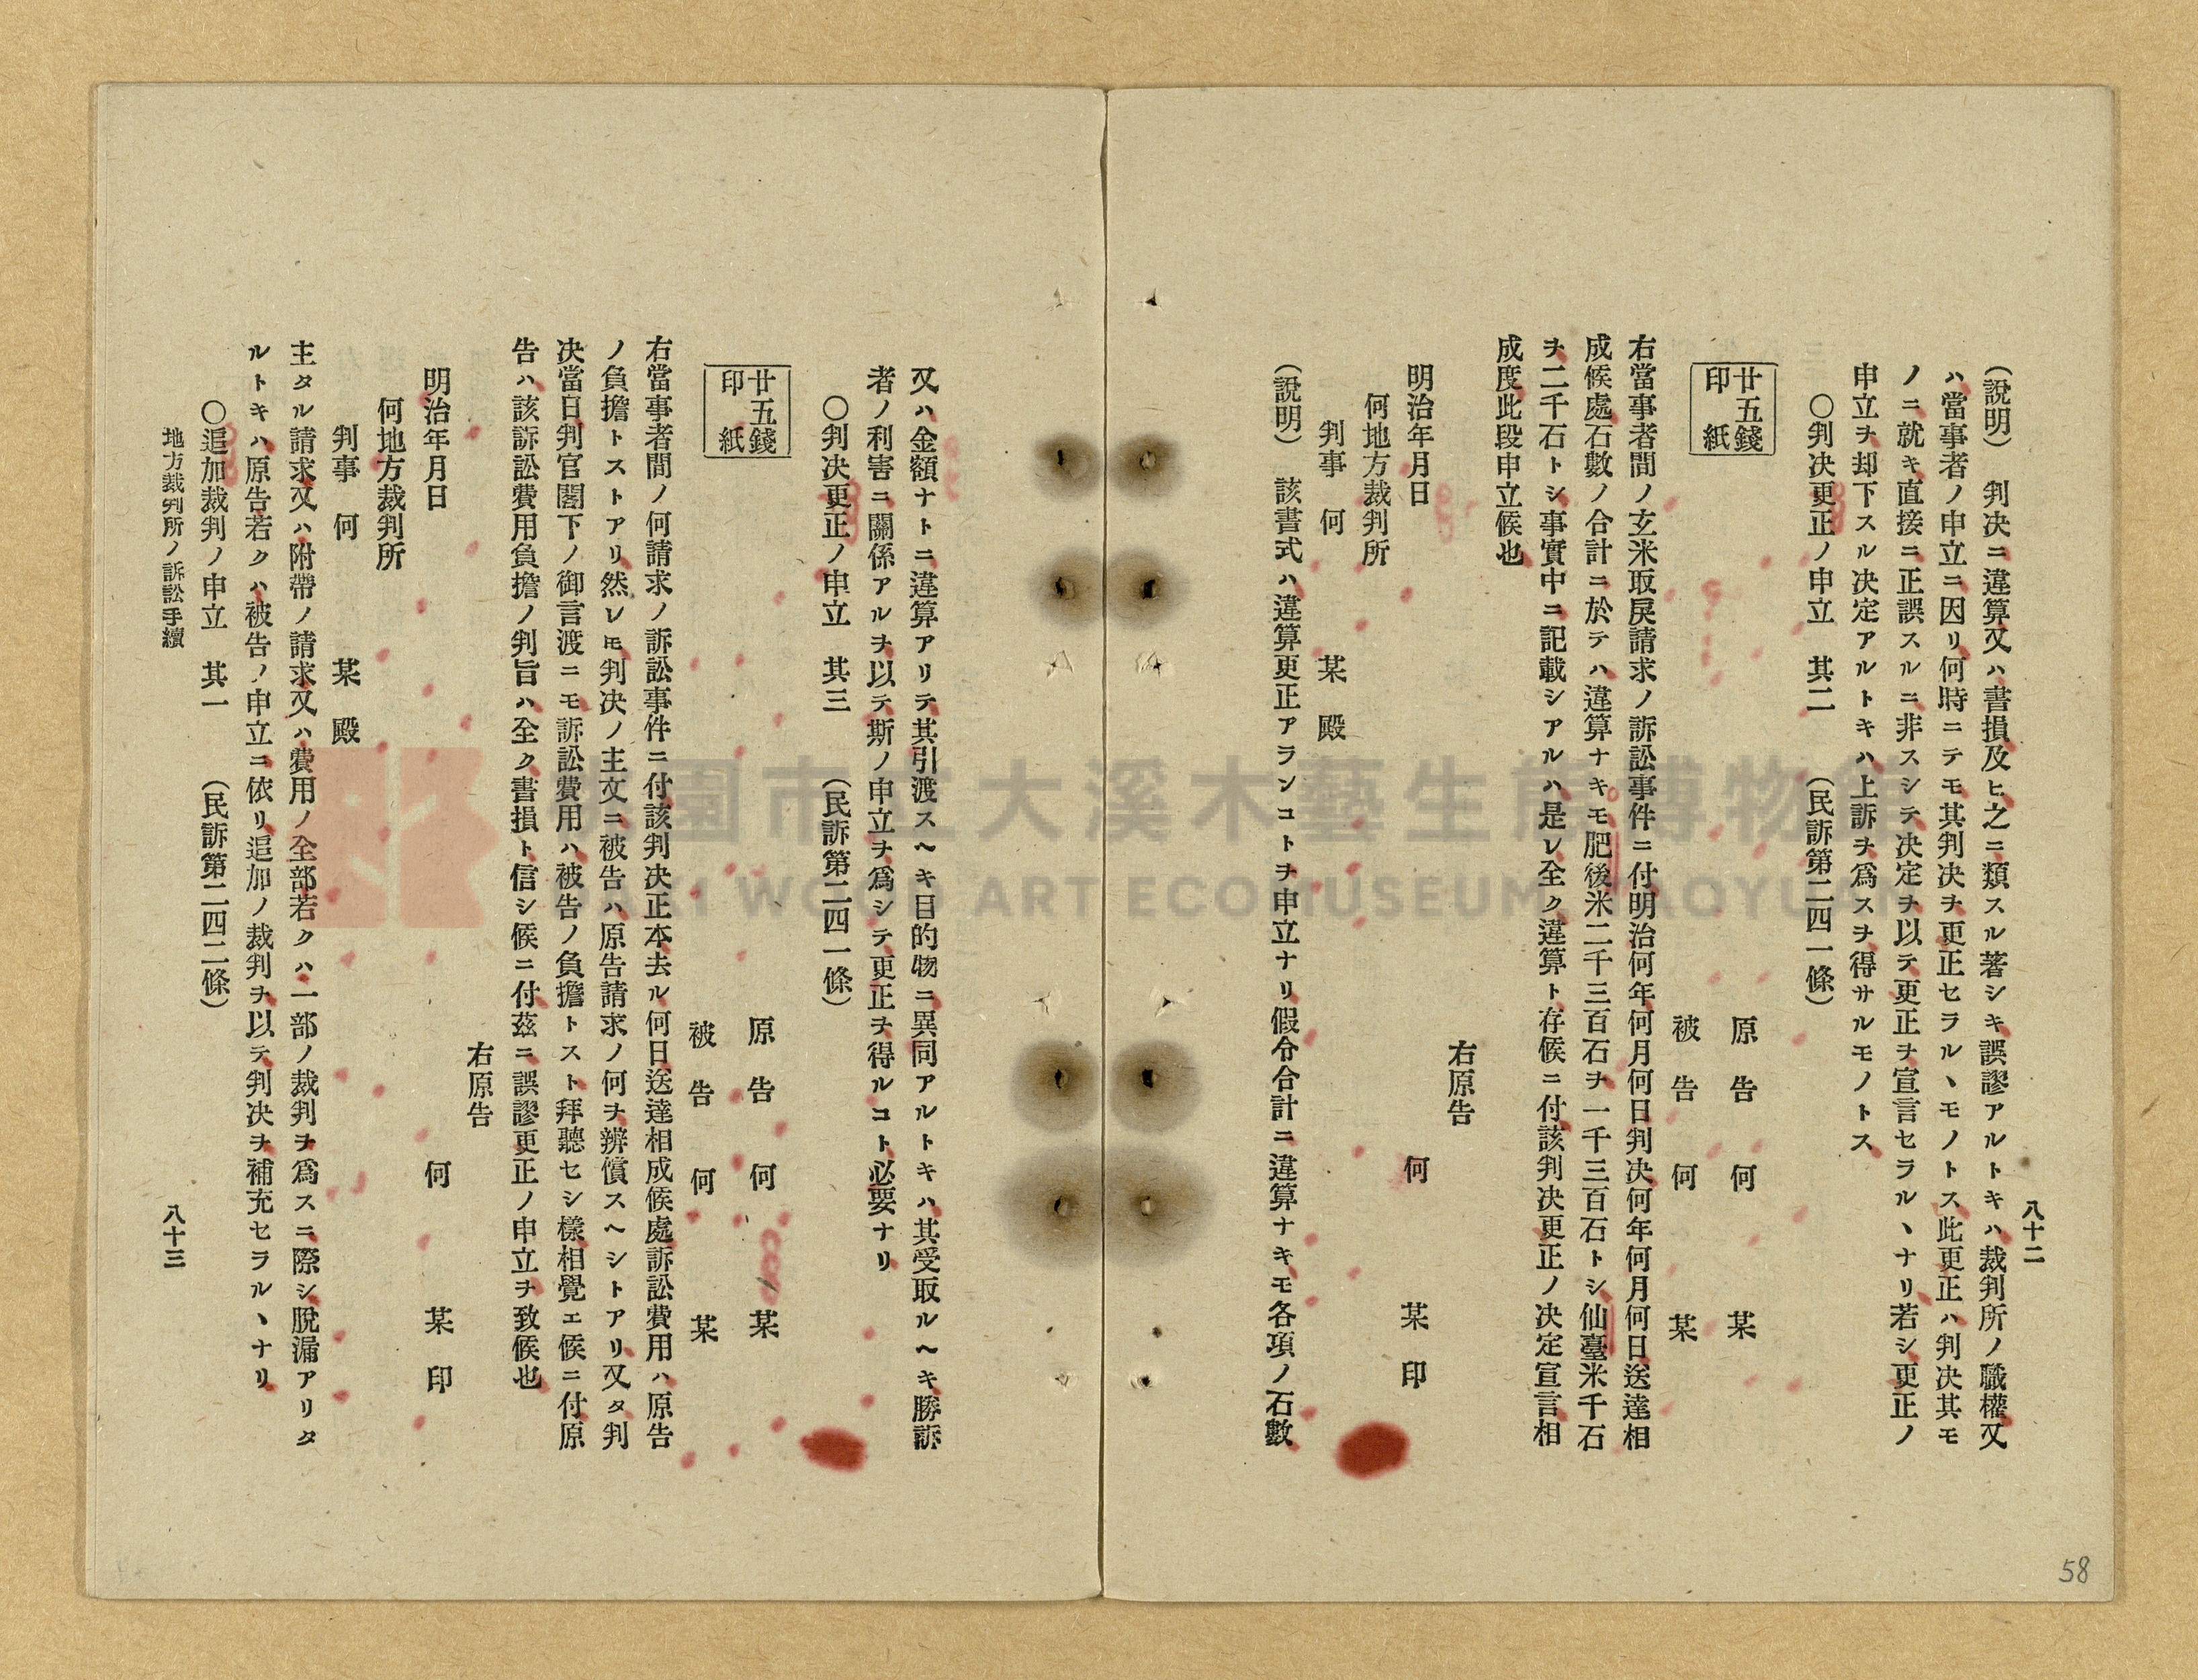 八十二
(説明)　判决ニ違算又ハ書損及ヒ之ニ類スル著シキ誤謬アルトキハ裁判所ノ職權又
ハ當事者ノ申立ニ因リ何時ニテモ其判决ヲ更正セラルヽモノトス此更正ハ判决其モ
ノニ就キ直接ニ正誤スルニ非スシテ决定ヲ以テ更正ヲ宣言セラルヽナリ若シ更正ノ
申立ヲ却下スル决定アルトキハ上訴ヲ爲スヲ得サルモノトス
〇判决更正ノ申立　其二　(民訴第二四一條)
廿五錢
印紙
原告　何　某
被告　何　某
右當事者間ノ玄米取戻請求ノ訴訟事件ニ付明治何年何月何日判决何年何月何日送達相
成候處石數ノ合計ニ於テハ違算ナキモ肥後米二千三百石ヲ一千三百石トシ仙臺米千石
ヲ二千石トシ事實中ニ記載シアルハ是レ全ク違算ト存候ニ付該判决更正ノ决定宣言相
成度此段申立候也
右原告
明治年月日　何　某　印
何地方裁判所
判事　何　某　殿
(説明)　該書式ハ違算更正アランコトヲ申立ナリ假令合計ニ違算ナキモ各項ノ石數
又ハ金額ナトニ違算アリテ其引渡スヘキ目的物ニ異同アルトキハ其受取ルヘキ勝訴
者ノ利害ニ關係アルヲ以テ斯ノ申立ヲ爲シテ更正ヲ得ルコト必要ナリ
〇判决更正ノ申立　其三　(民訴第二四一條)
廿五錢
印紙
原告　何　某
被告　何　某
右當事者間ノ何請求ノ訴訟事件ニ付該判决正本去ル何日送達相成候處訴訟費用ハ原告
ノ負擔トストアリ然レモ判决ノ主文ニ被告ハ原告請求ノ何ヲ辨償スヘシトアリ又タ判
决當日判官閣下ノ御言渡ニモ訴訟費用ハ被告ノ負擔トスト拜聽セシ樣相覺エ候ニ付原
告ハ該訴訟費用負擔ノ判旨ハ全ク書損ト信シ候ニ付茲ニ誤謬更正ノ申立ヲ致候也
右原告
明治年月日　何　某　印
何地方裁判所
判事　何　某　殿
主タル請求又ハ附帶ノ請求又ハ費用ノ全部若クハ一部ノ裁判ヲ爲スニ際シ脱漏アリタ
ルトキハ原告若クハ被告ノ申立ニ依リ追加ノ裁判ヲ以テ判决ヲ補充セラルヽナリ
〇追加裁判ノ申立　其一　(民訴第二四二條)
地方裁判所ノ訴訟手續
八十三
58
桃園市立大溪木藝生態博物館
DAXI WOOD ART ECOMUSEUM, TAOYUAN